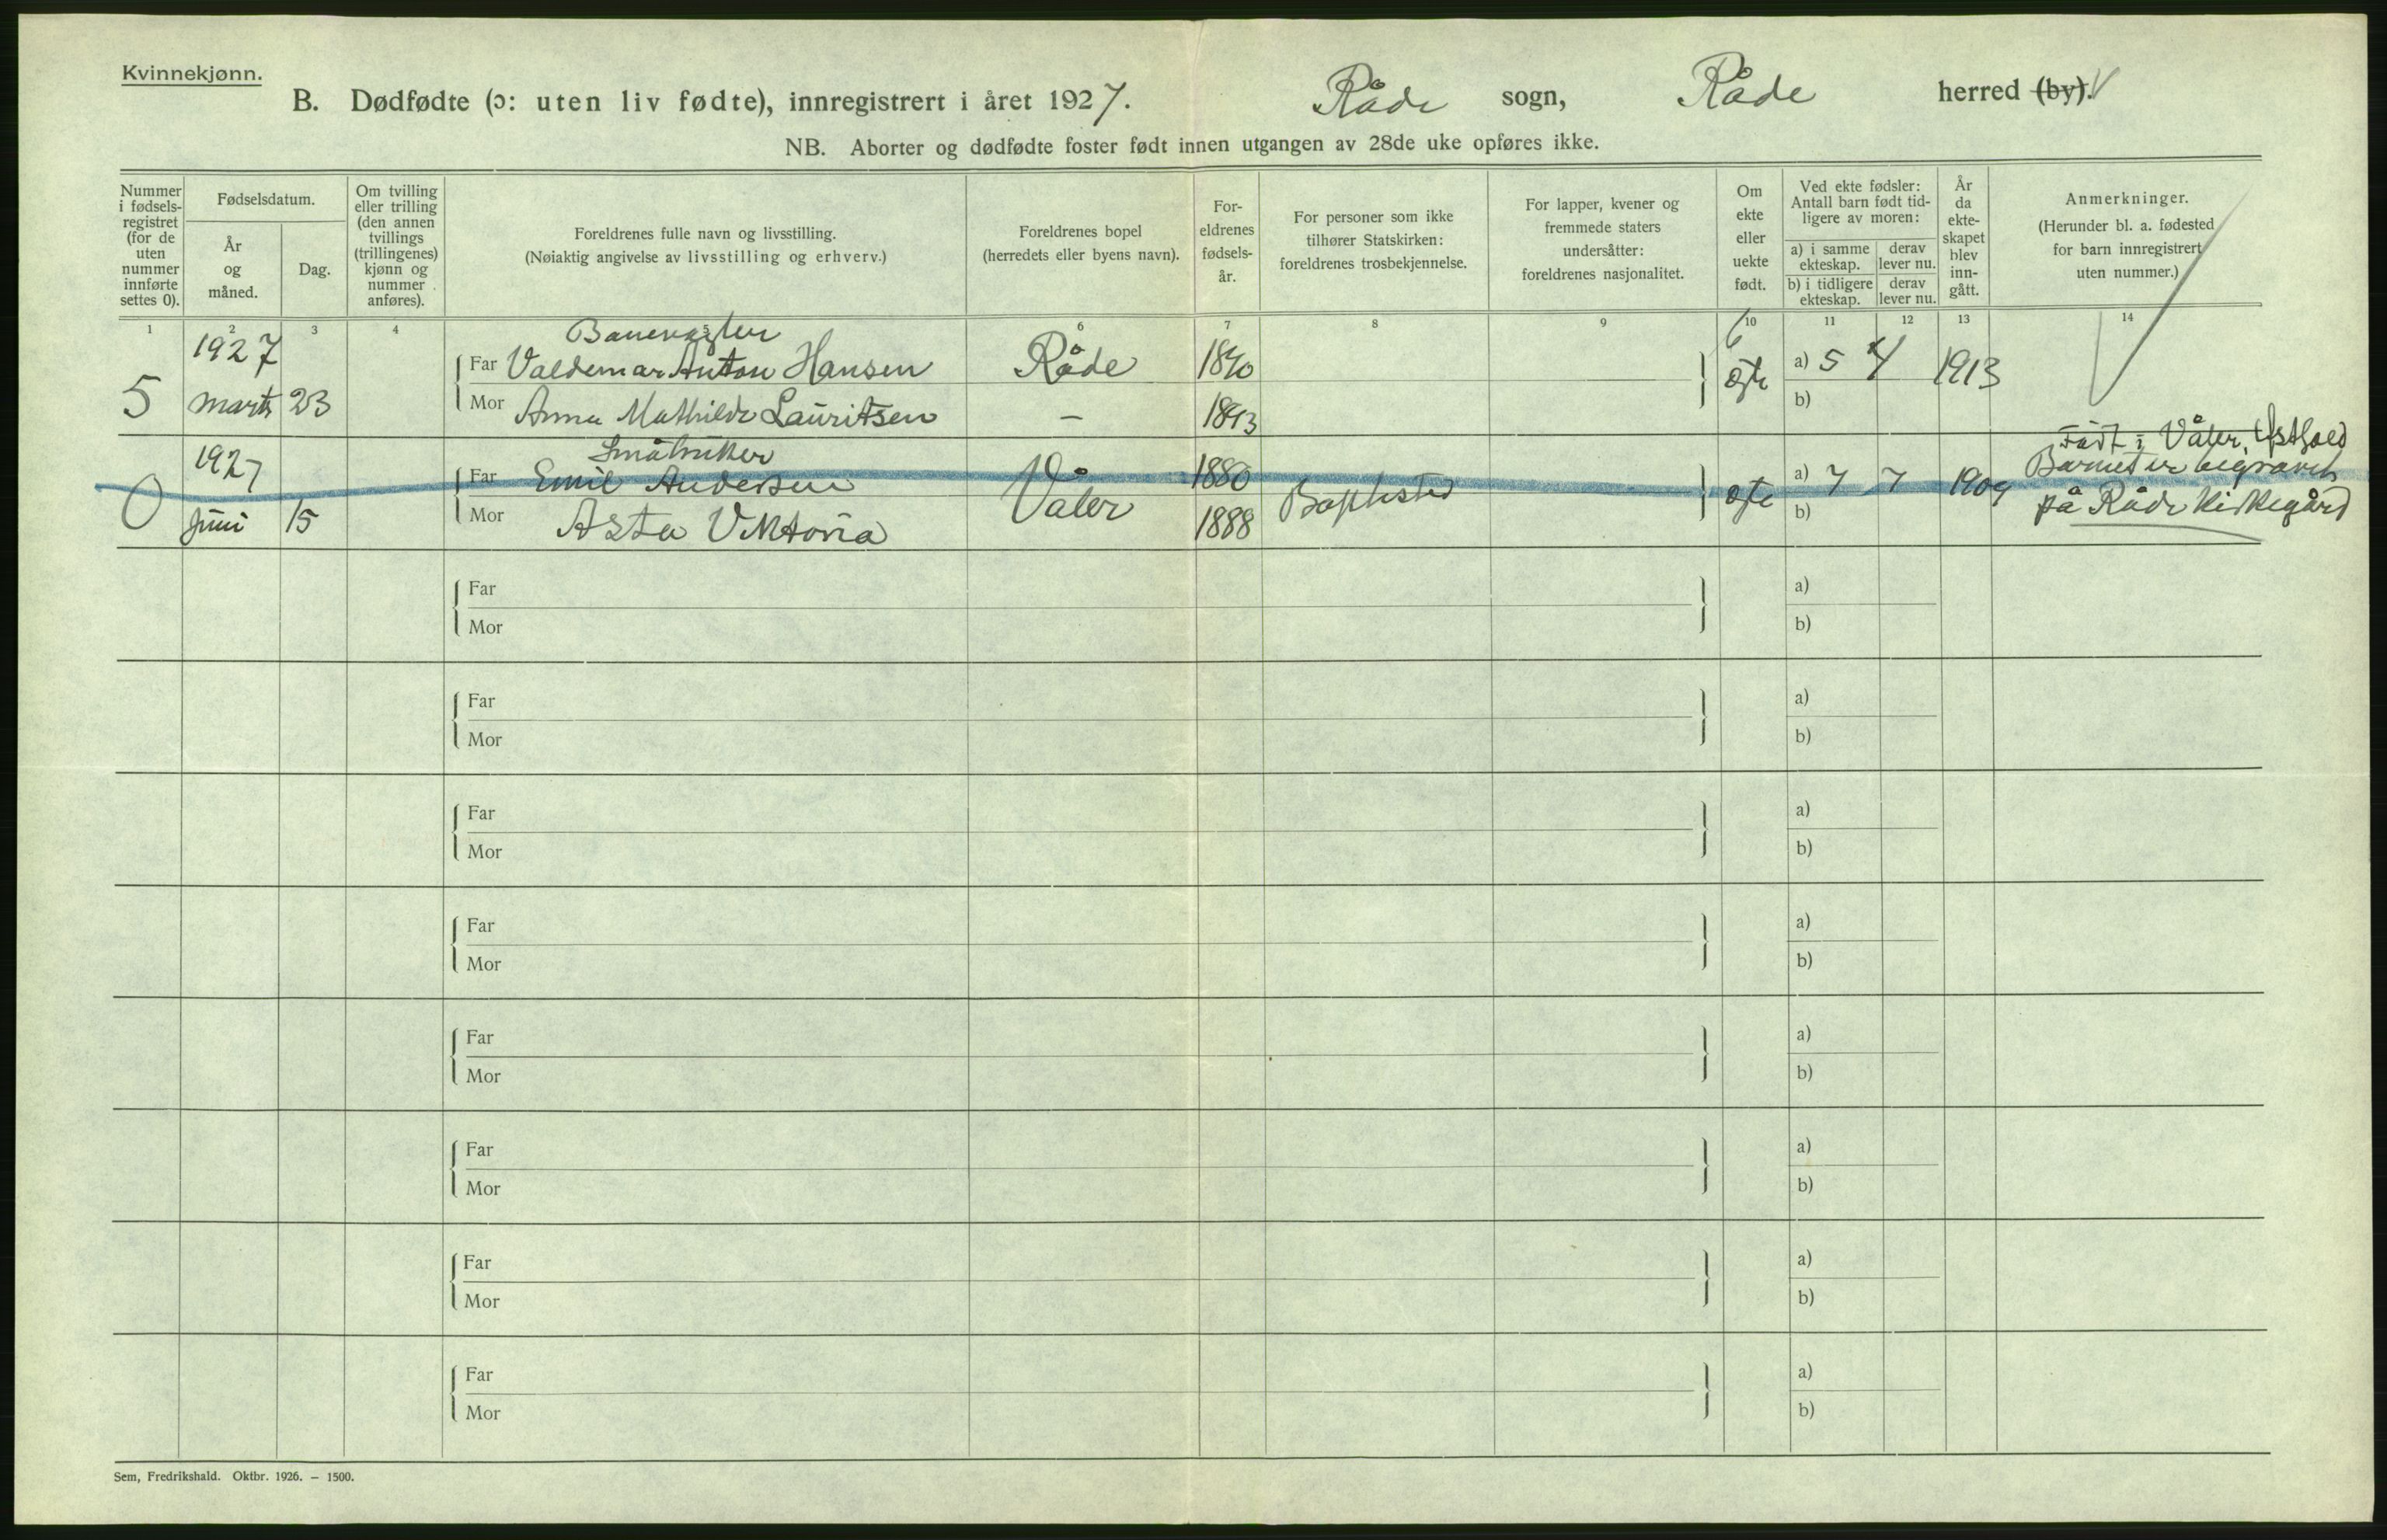 Kvinnekjønn.
B. Dødfødte (ɔ: uten liv fødte), innregistrert i året 1927. Råde sogn, Råde herred (by).
NB. Aborter og dødfødte foster født innen utgangen av 28de uke opføres ikke.
Nummer i fødsels-registret (for de uten nummer innførte settes 0).
Fødselsdatum.
År og måned.
Dag.
Om tvilling eller trilling (den annen tvillings (trillingenes) kjønn og nummer anføres).
Foreldrenes fulle navn og livsstilling.
(Nøiaktig angivelse av livsstilling og erhverv.)
Foreldrenes bopel
(herredets eller byens navn).
For-eldrenes fødsels-år.
For personer som ikke tilhører Statskirken: foreldrenes trosbekjennelse.
For lapper, kvener og fremmede staters undersåtter: foreldrenes nasjonalitet.
Om ekte eller uekte født.
Ved ekte fødsler: Antall barn født tid-ligere av moren:
a) i samme ekteskap.
derav lever nu.
b) i tidligere ekteskap.
derav lever nu.
År da ekte-skapet blev inn-gått.
Anmerkninger.
(Herunder bl. a. fødested for barn innregistrert uten nummer.)
1 2 3 4 5 6 7 8 9 10 11 12 13 14
Banevogter
5 1927 marts 23 Far Valdemar Anton Hansen Råde 1890 ægte a) 5 4 1913
Mor Anna Mathilde Lauritsen — 1893 b)
Småbruker
0 1927 juni 15 Far Emil Andersen Våler 1880 Baptisted ægte a) 7 7 1909
Mor Asta Viktoria 1888 b)
Født i Våler, Østfold
Barnet er begravet
på Råde kirkegård
Far a)
Mor b)
Far a)
Mor b)
Far a)
Mor b)
Far a)
Mor b)
Far a)
Mor b)
Far a)
Mor b)
Far a)
Mor b)
Far a)
Mor b)
Sem, Fredrikshald. Oktbr. 1926. – 1500.